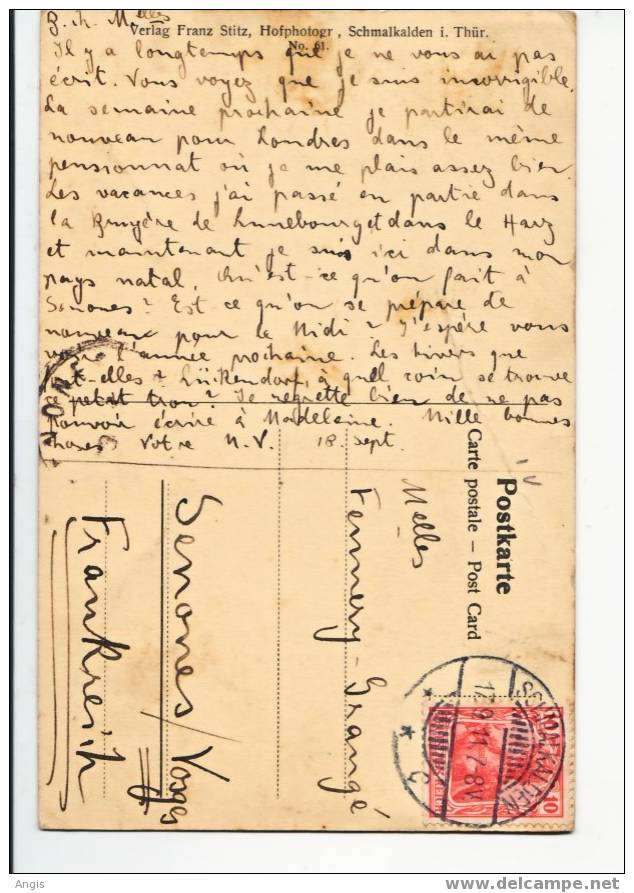 Verlag Franz Stitz, Hofphotogr, Schmalkalden i. Thür.
No. 61.
Melles
Il y a longtemps que je ne vous ai pas
écrit. Vous voyez que je suis incorrigible.
La semaine prochaine je partirai de
nouveau pour Londres dans le même
pensionnat où je me plais assez bien.
Les vacances j'ai passé en partie dans
la Bruyère de Lunnebourg et dans le Harz
et maintenant je suis ici dans mon
pays natal. Qu'est-ce qu'on fait à
Senones? Est ce qu'on se prépare de
nouveau pour le Midi? J'espère vous
voir l'année prochaine. Les hivers que
font-elles? Lückendorf, à quel coin se trouve
ce petit trou? Je regrette bien de ne pas
pouvoir écrire à Madeleine. Mille bonnes
choses Votre N.V. 18. sept.
Postkarte
Carte postale — Post Card
Melles
Fennery-Grangé
Senones / Vosges
Frankreich
SCHMALKALDEN
17.9.11.7-8V
10
Angis
delcampe.net